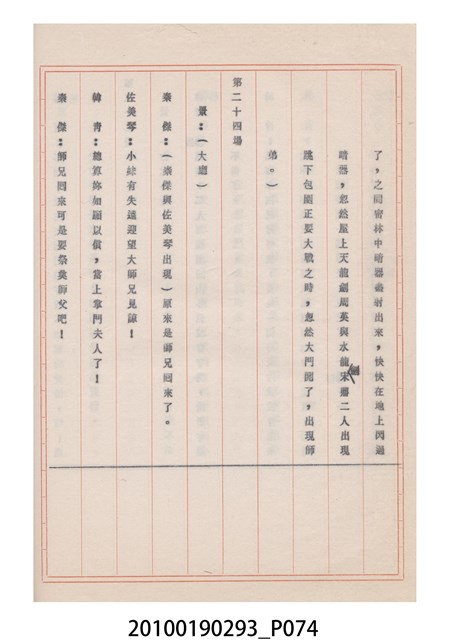 了，之間密林中暗器齊射出來，快快在地上閃過
暗器，忽然屋上天龍劍周英與水龍宋 二人出現
跳下包圍正要大戰之時，忽然大門開了，出現師
弟。）
第二十四場
景：（大廳）
秦　傑：（秦傑與佐美琴出現）原來是師兄回來了。
佐美琴：小妹有失遠迎望大師兄見諒！
韓　青：總算妳如願以償，當上掌門夫人了！
秦　傑：師兄回來可是要祭奠師父吧！
20100190293_P074